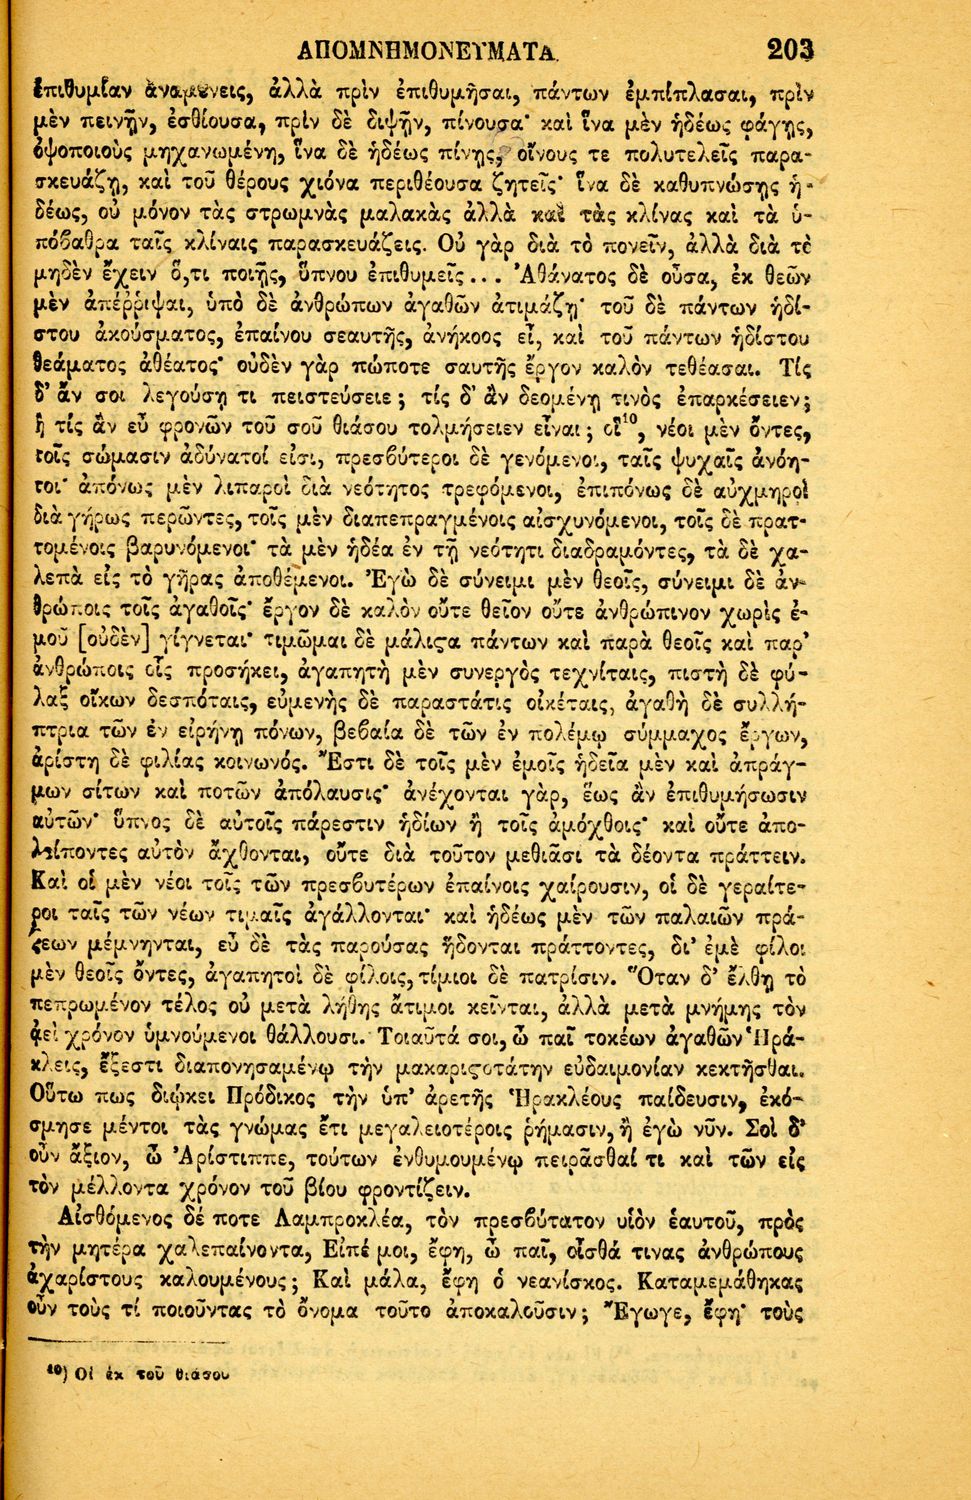 ΑΠΟΜΝΗΜΟΝΕΥΜΑΤΑ. 203
ἐπιθυμίαν ἀναμένεις, ἀλλὰ πρὶν ἐπιθυμῆσαι, πάντων ἐμπίπλασαι, πρὶν
μὲν πεινῇν, ἐσθίουσα, πρὶν δὲ διψῇν, πίνουσα· καὶ ἵνα μὲν ἡδέως φάγῃς,
ὀψοποιοὺς μηχανωμένη, ἵνα δὲ ἡδέως πίνῃς, οἴνους τε πολυτελεῖς παρα-
σκευάζῃ, καὶ τοῦ θέρους χιόνα περιθέουσα ζητεῖς· ἵνα δὲ καθυπνώσῃς ἡ-
δέως, οὐ μόνον τὰς στρωμνὰς μαλακὰς ἀλλὰ καὶ τὰς κλίνας καὶ τὰ ὑ-
πόβαθρα ταῖς κλίναις παρασκευάζεις. Οὐ γὰρ διὰ τὸ πονεῖν, ἀλλὰ διὰ τὸ
μηδὲν ἔχειν ὅ,τι ποιῇς, ὕπνου ἐπιθυμεῖς... Ἀθάνατος δὲ οὖσα, ἐκ θεῶν
μὲν ἀπέῤῥιψαι, ὑπὸ δὲ ἀνθρώπων ἀγαθῶν ἀτιμάζῃ· τοῦ δὲ πάντων ἡδί-
στου ἀκούσματος, ἐπαίνου σεαυτῆς, ἀνήκοος εἶ, καὶ τοῦ πάντων ἡδίστου
θεάματος ἀθέατος· οὐδὲν γὰρ πώποτε σαυτῆς ἔργον καλὸν τεθέασαι. Τίς
δ' ἄν σοι λεγούσῃ τι πειστεύσειε; τίς δ' ἂν δεομένῃ τινὸς ἐπαρκέσειεν;
ἢ τίς ἂν εὖ φρονῶν τοῦ σοῦ θιάσου τολμήσειεν εἶναι; οἳ¹⁰, νέοι μὲν ὄντες,
τοῖς σώμασιν ἀδύνατοί εἰσι, πρεσβύτεροι δὲ γενόμενοι, ταῖς ψυχαῖς ἀνόη-
τοι· ἀπόνως μὲν λιπαροὶ διὰ νεότητος τρεφόμενοι, ἐπιπόνως δὲ αὐχμηροὶ
διὰ γήρως περῶντες, τοῖς μὲν διαπεπραγμένοις αἰσχυνόμενοι, τοῖς δὲ πρατ-
τομένοις βαρυνόμενοι· τὰ μὲν ἡδέα ἐν τῇ νεότητι διαδραμόντες, τὰ δὲ χα-
λεπὰ εἰς τὸ γῆρας ἀποθέμενοι. Ἐγὼ δὲ σύνειμι μὲν θεοῖς, σύνειμι δὲ ἀν-
θρώποις τοῖς ἀγαθοῖς· ἔργον δὲ καλὸν οὔτε θεῖον οὔτε ἀνθρώπινον χωρὶς ἐ-
μοῦ [οὐδὲν] γίγνεται· τιμῶμαι δὲ μάλιϛα πάντων καὶ παρὰ θεοῖς καὶ παρ'
ἀνθρώποις οἷς προσήκει, ἀγαπητὴ μὲν συνεργὸς τεχνίταις, πιστὴ δὲ φύ-
λαξ οἴκων δεσπόταις, εὐμενὴς δὲ παραστάτις οἰκέταις, ἀγαθὴ δὲ συλλή-
πτρια τῶν ἐν εἰρήνῃ πόνων, βεβαία δὲ τῶν ἐν πολέμῳ σύμμαχος ἔργων,
ἀρίστη δὲ φιλίας κοινωνός. Ἔστι δὲ τοῖς μὲν ἐμοῖς ἡδεῖα μὲν καὶ ἀπράγ-
μων σίτων καὶ ποτῶν ἀπόλαυσις· ἀνέχονται γάρ, ἕως ἂν ἐπιθυμήσωσιν
αὐτῶν· ὕπνος δὲ αὐτοῖς πάρεστιν ἡδίων ἢ τοῖς ἀμόχθοις· καὶ οὔτε ἀπο-
λείποντες αὐτὸν ἄχθονται, οὔτε διὰ τοῦτον μεθιᾶσι τὰ δέοντα πράττειν.
Καὶ οἱ μὲν νέοι τοῖς τῶν πρεσβυτέρων ἐπαίνοις χαίρουσιν, οἱ δὲ γεραίτε-
ροι ταῖς τῶν νέων τιμαῖς ἀγάλλονται· καὶ ἡδέως μὲν τῶν παλαιῶν πρά-
ξεων μέμνηνται, εὖ δὲ τὰς παρούσας ἥδονται πράττοντες, δι' ἐμὲ φίλοι
μὲν θεοῖς ὄντες, ἀγαπητοὶ δὲ φίλοις, τίμιοι δὲ πατρίσιν. Ὅταν δ' ἔλθῃ τὸ
πεπρωμένον τέλος οὐ μετὰ λήθης ἄτιμοι κεῖνται, ἀλλὰ μετὰ μνήμης τὸν
ἀεὶ χρόνον ὑμνούμενοι θάλλουσι. Τοιαῦτά σοι, ὦ παῖ τοκέων ἀγαθῶν Ἡρά-
κλεις, ἔξεστι διαπονησαμένῳ τὴν μακαριϛοτάτην εὐδαιμονίαν κεκτῆσθαι.
Οὕτω πως διῴκει Πρόδικος τὴν ὑπ' ἀρετῆς Ἡρακλέους παίδευσιν, ἐκό-
σμησε μέντοι τὰς γνώμας ἔτι μεγαλειοτέροις ῥήμασιν, ἢ ἐγὼ νῦν. Σοὶ δ'
οὖν ἄξιον, ὦ Ἀρίστιππε, τούτων ἐνθυμουμένῳ πειρᾶσθαί τι καὶ τῶν εἰς
τὸν μέλλοντα χρόνον τοῦ βίου φροντίζειν.
Αἰσθόμενος δέ ποτε Λαμπροκλέα, τὸν πρεσβύτατον υἱὸν ἑαυτοῦ, πρὸς
τὴν μητέρα χαλεπαίνοντα, Εἰπέ μοι, ἔφη, ὦ παῖ, οἶσθά τινας ἀνθρώπους
ἀχαρίστους καλουμένους; Καὶ μάλα, ἔφη ὁ νεανίσκος. Καταμεμάθηκας
οὖν τοὺς τί ποιοῦντας τὸ ὄνομα τοῦτο ἀποκαλοῦσιν; Ἔγωγε, ἔφη· τοὺς
¹⁰) Οἱ ἐκ τοῦ θιάσου